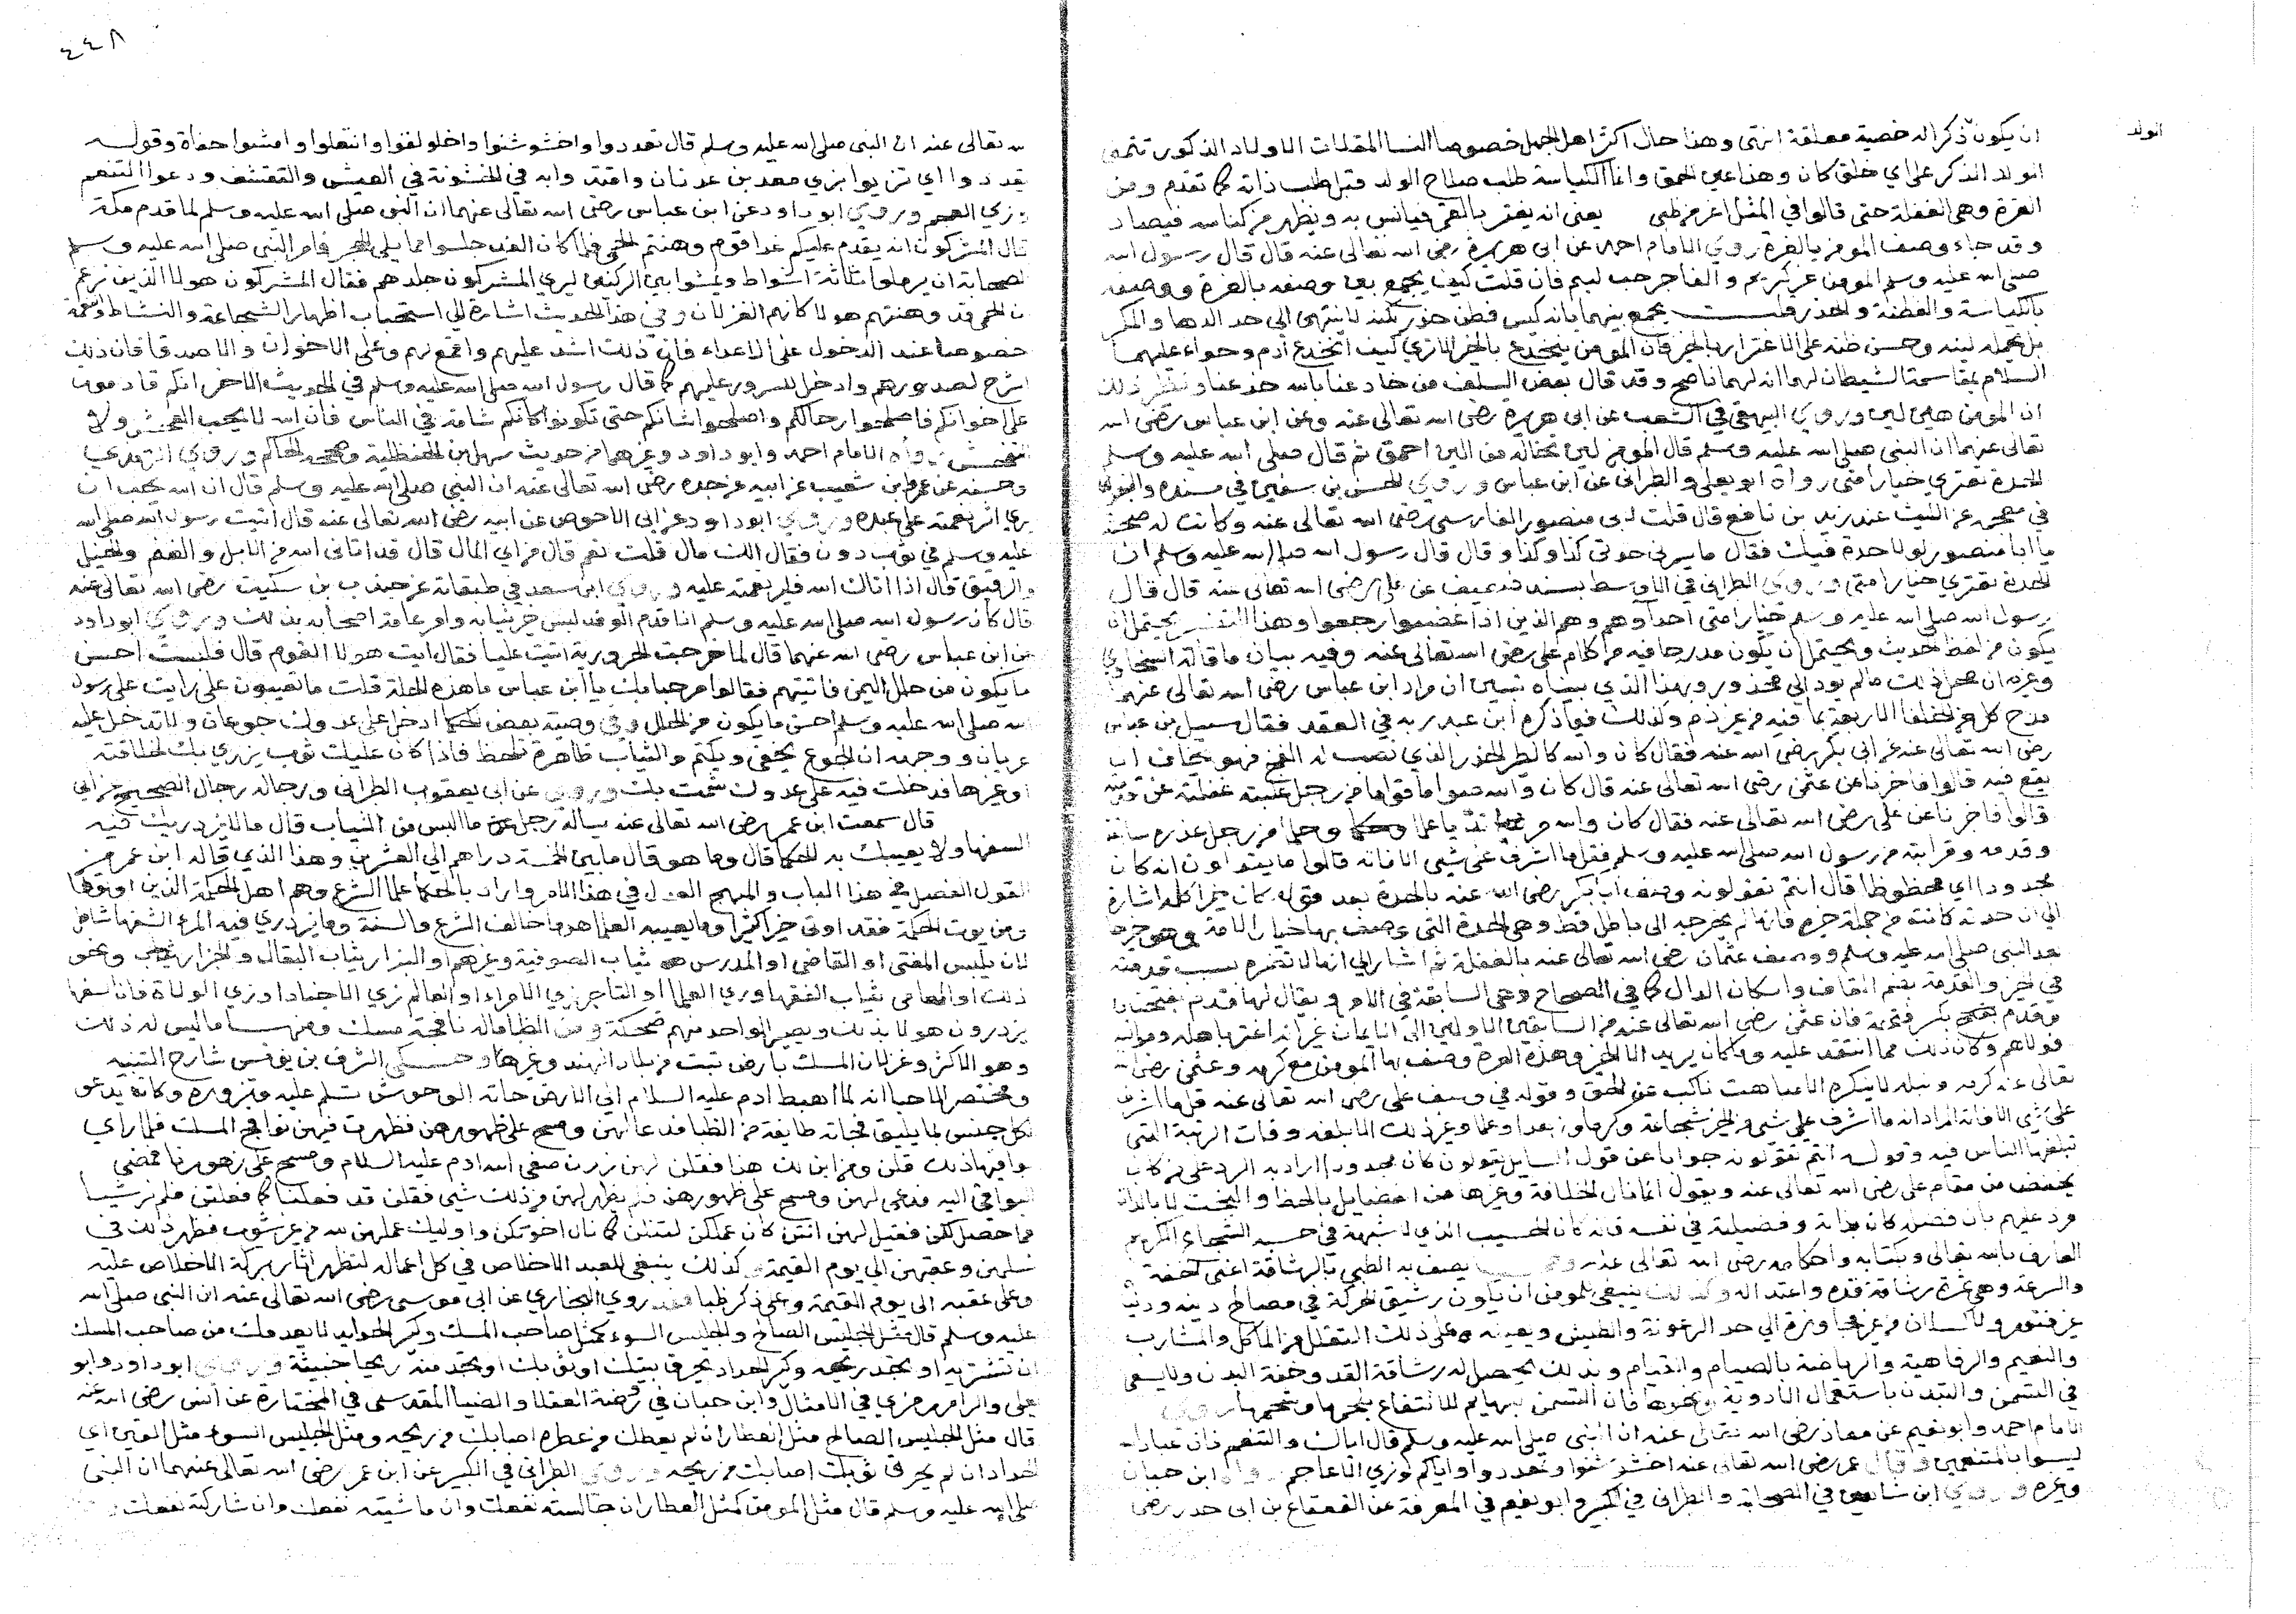 الولد
ان يكون ذكرا له خصية معلقة انتهى وهذا حال اكثر اهل الجهل خصوصا النسا المقلات الاولاد الذكور تتمنى
الولد الذكر على اي خلق كان وهذا عين الحمق وانما الكياسة طلب صلاح الولد قبل طلب ذاته كما تقدم ومن
الغرة وهي الغفلة حتى قالوا في المثل اغر من ظبي يعني انه يغتر بالقمر فيانس به ويظهر من كناسه فيصاد
وقد جاء وصف المومن بالغرة روي الامام احمد عن ابي هريرة رضي الله تعالى عنه قال قال رسول الله
صلى الله عليه وسلم المومن غر كريم والفاجر خب لييم فان قلت كيف يجمع بين وصفه بالغرة ووصفه
بالكياسة والفطنة والحذر قلت يجمع بينهما بانه كيس فطن حذر لكنه لا ينتهي الى حد الدها والمكر
بل يحمله لينه وحسن ظنه على الاغترار بالخير فان المومن ينخدع بالخير الا تري كيف انخدع ادم وحواء عليهما
السلام بمقاسمة الشيطان لهما انه لهما ناصح وقد قال بعض السلف من خادعنا بالله خدعنا ونظير ذلك
ان المومن هين لين وروي البيهقي في الشعب عن ابي هريرة رضي الله تعالى عنه وعن ابن عباس رضي الله
تعالى عنهما ان النبي صلى الله عليه وسلم قال المومن لين تخاله من اللين احمق ثم قال صلى الله عليه وسلم
الحدة تعتري خيار امتي رواه ابو يعلى والطبراني عن ابن عباس وروي الحسن بن سفين في مسنده والبغوي
في معجمه عن الليث عند يزيد بن نافع قال قلت لابي منصور الفارسي رضي الله تعالى عنه وكانت له صحبة
يا ابا منصور لولا حدة فيك فقال ما يسرني حدتي كذا وكذا وقال قال رسول الله صلى الله عليه وسلم ان
الحدة تعتري خيار امتي وروي الطبراني في الاوسط بسند ضعيف عن علي رضي الله تعالى عنه قال قال
رسول الله صلى الله عليه وسلم خيار امتي احداوهم وهم الذين اذا غضبوا رجعوا وهذا التفسير يحتمل ان
يكون من لفظ الحديث ويحتمل ان يكون مدرجا فيه من كلام علي رضي الله تعالى عنه وفيه بيان ما قاله السخاوي
وغيره ان محل ذلك ما لم يود الى محذور وبهذا الذي بيناه تبين ان مراد ابن عباس رضي الله تعالى عنهما
مدح كل من الخلفا الاربعة بما فيه من غير ذم وكذلك فيما ذكره ابن عبد ربه في العقد فقال سييل بن عباس
رضي الله تعالى عنه عن ابي بكر رضي الله عنه فقال كان والله كالطير الحذر الذي نصب له الفخ فهو يخاف ان
يقع فيه قالوا فاخبرنا عن عثمن رضي الله تعالى عنه قال كان والله صواما قواما من رجل غلبته غفلته عن
قالوا فاخبرنا عن علي رضي الله تعالى عنه فقال كان والله علما وحلما من رجل غره سابقته
وقدمه وقرابته من رسول الله صلى الله عليه وسلم فقل ما اشرف على شي الا فاته قالوا ما يقولون انه كان
مجدودا اي محظوظا قال انتم تقولونه وصف ابا بكر رضي الله عنه بالحدة بعد قوله كان خيرا كله اشارة
الى ان حدته كانت من جملة خيره فانه لم يخرجه الى باطل قط وهي الحدة التي وصف بها خيار الامة وهو خيرهم
بعد النبي صلى الله عليه وسلم ووصف عثمان رضي الله تعالى عنه بالغفلة ثم اشار الى انها لا تضره بسبب قدمته
في الخير والقدمة بضم القاف واسكان الدال كما في الصحاح وهي السابقة في الامر ويقال لها قدم بفتحتين
وقدم بكسر فتحة فان عثمن رضي الله تعالى عنه من السابقين الاولين الى الايمان غير انه اغتر باهله ومواليه
فولاهم وكان ذلك مما انتقد عليه وما كان يريد الا الخير وهذه الغرة وصف بها المومن مع كرمه وعثمن رضي الله
تعالى عنه كرمه ونبله لا ينكره الا مباهت ناكب عن الحق وقوله في وصف علي رضي الله تعالى عنه قل ما اشرف
على شي الا فاته المراد انه ما اشرف على شي من الخير شجاعة وكرما وزهدا وعلما وغير ذلك الا بلغه وفات الرتبة التي
تبلغها الناس فيه وقوله انتم تقولونه جوابا عن قول السايل يقولون كان مجدودا اراد به الرد على من كان
يخفض من مقام علي رضي الله تعالى عنه ويقول انما نال الخلافة وغيرها من الفضايل بالحظ والبخت لا بالذات
فرد عليهم بان فضله كان بذاته وفضيلته في نفسه فانه كان الحسيب الذي لا شبهة في حسبه الشجاع الكريم
العارف بالله تعالى وبكتابه واحكامه رضي الله تعالى عنه يوصف به الظبي بالرشاقة اعني الخفة
والسرعة وهي غرة رشاقة قده واعتداله وكذلك ينبغي للمومن ان يكون رشيق الحركة في مصالح دينه ودنياه
غير فتور ولا كسلان من غير مجاوزة الى حد الرعونة والطيش ويعينه على ذلك التقلل من الماكل والمشارب
والنعيم والرفاهية والرياضة بالصيام والقيام وبذلك يحصل له رشاقة القد وخفة البدن ولا يسعى
في التسمن والتبدن باستعمال الادوية ونحوها فان التسمن للبهايم للانتفاع بلحمها وشحمها روي
الامام احمد وابو نعيم عن معاذ رضي الله تعالى عنه ان النبي صلى الله عليه وسلم قال اياك والتنعم فان عباد الله
ليسوا بالمتنعمين وقال عمر رضي الله تعالى عنه اخشوشنوا وتمعددوا واياكم وزي الاعاجم رواه ابن حبان
وغيره وروي ابن شاهين في الصحابة والطبراني في الكبير وابو نعيم في المعرفة عن القعقاع بن ابي حدرد رضي
٤٤٨
الله تعالى عنه ان النبي صلى الله عليه وسلم قال تمعددوا واخشوشنوا واخلولقوا وانتعلوا وامشوا حفاة وقوله
تمعددوا اي تزيوا بزي معد بن عدنان واقتدوا به في الخشونة في العيش والتقشف ودعوا التنعم
وزي العجم وروي ابو داود عن ابن عباس رضي الله تعالى عنهما ان النبي صلى الله عليه وسلم لما قدم مكة
قال المشركون انه يقدم عليكم غدا قوم وهنتهم الحمى فلما كان الغد جلسوا مما يلي الحجر فامر النبي صلى الله عليه وسلم
الصحابة ان يرملوا ثلاثة اشواط ويمشوا بين الركنين ليري المشركون جلدهم فقال المشركون هولا الذين نزعم
ان الحمى قد وهنتهم هولا كانهم الغزلان وفي هذا الحديث اشارة الى استحباب اظهار الشجاعة والنشاط والنعمة
خصوصا عند الدخول على الاعداء فان ذلك اشد عليهم واقمع لهم وعلى الاخوان والاصدقا فان ذلك
اشرح لصدورهم وادخل للسرور عليهم كما قال رسول الله صلى الله عليه وسلم في الحديث الاخر انكم قادمون
على اخوانكم فاصلحوا رحالكم واصلحوا شانكم حتى تكونوا كانكم شامة في الناس فان الله لا يحب الفحش ولا
التفحش رواه الامام احمد وابو داود وغيرهما من حديث سهل بن الحنظلية وصححه الحاكم وروي الترمذي
وحسنه عن عمرو بن شعيب عن ابيه عن جده رضي الله تعالى عنه ان النبي صلى الله عليه وسلم قال ان الله يحب ان
يري اثر نعمته على عبده وروي ابو داود عن ابي الاحوص عن ابيه رضي الله تعالى عنه قال اتيت رسول الله صلى الله
عليه وسلم في ثوب دون فقال الك مال قلت نعم قال من اي المال قال قد اتاني الله من الابل والغنم والخيل
والرقيق قال اذا اتاك الله فلير نعمته عليه وروي ابن سعد في طبقاته عن جندب بن مكيث رضي الله تعالى عنه
قال كان رسول الله صلى الله عليه وسلم اذا قدم الوفد لبس خير ثيابه وامر عامة اصحابه بذلك وروي ابو داود
عن ابن عباس رضي الله عنهما قال لما خرجت الحرورية اتيت عليا فقال ايت هولا القوم قال فلبست احسن
ما يكون من حلل اليمن فاتيتهم فقالوا مرحبا بك يا ابن عباس ما هذه الحلة قلت ما تعيبون علي رايت على رسول
الله صلى الله عليه وسلم احسن ما يكون من الحلل وفي وصية بعض الحكما ادخل على عدوك جوعان ولا تدخل عليه
عريان ووجهه ان الجوع يخفى ويكتم والثياب ظاهرة تلحظ فاذا كان عليك ثوب يزري بك لخلاقته
او غيرها فدخلت فيه على عدوك شمت بك وروي عن ابي يعقوب الطبراني ورجاله رجال الصحيح عن ابي
قال سمعت ابن عمر رضي الله تعالى عنه ساله رجل ما البس من الثياب قال ما لا يزدريك فيه
السفها ولا يعيبك به الحكما قال وما هو قال ما بين الخمسة دراهم الى العشرين وهذا الذي قاله ابن عمر من
القول الفصل في هذا الباب والمنهج العدل في هذا الامر واراد بالحكما علما الشرع وهم اهل الحكمة الذين اوتوها
ومن يوت الحكمة فقد اوتي خيرا كثيرا وما يعيبه العلما هو ما خالف الشرع والسنة وما يزدري فيه المرء السفها
لان يلبس المفتي او القاضي او المدرس ثياب الصوفية وغيرهم او البزار ثياب البقال والجزار ونحو
ذلك او العامي ثياب الفقها وزي العلما او التاجر زي الامراء او العالم زي الاجناد او زي الولاة فان السفها
يزدرون هولا بذلك ويصير الواحد منهم ضحكة ومن الظبا ما له نافجة مسك ومنها ما ليس له ذلك
وهو الاكثر وغزلان المسك بارض تبت من بلاد الهند وغيرها وحكى الشرف بن يونس شارح التنبيه
ومختصر الاحيا انه لما اهبط ادم عليه السلام الى الارض جاته الوحوش تسلم عليه وتزوره وكان يدعو
لكل جنس بما يليق فجاته طايفة من الظبا فدعا لهن ومسح على ظهورهن فظهرت فيهن نوافج المسك فلما راي
بواقيها ذلك قلن من اين لك هذا فقلن لهن زرن صفي الله ادم عليه السلام ومسح على ظهورنا فمضى
البواقي اليه فدعى لهن ومسح على ظهورهن فلم يظهر لهن من ذلك شي فقلن قد فعلنا كما فعلتن فلم نر شيا
مما حصل لكن فقيل لهن انتن كان عملكن لتنلن كما نال اخوتكن واوليك عملهن لله من غير شوب فظهر ذلك في
نسلهن وعقبهن الى يوم القيمة وكذلك ينبغي للعبد الاخلاص في كل اعماله لتظهر اثار بركة الاخلاص عليه
وعلى عقبه الى يوم القيمة وعلى ذكر ظبا روي البخاري عن ابي موسى رضي الله تعالى عنه ان النبي صلى الله
عليه وسلم قال مثل الجليس الصالح والجليس السوء كمثل صاحب المسك وكير الحداد لا يعدمك من صاحب المسك
ان تشتريه او تجد ريحه وكير الحداد يحرق بيتك او ثوبك او تجد منه ريحا خبيثة وروي ابو داود وابو
يعلى والرامهرمزي في الامثال وابن حبان في روضة العقلا والضيا المقدسي في المختارة عن انس رضي الله عنه
قال مثل الجليس الصالح مثل العطار ان لم يعطك من عطره اصابك من ريحه ومثل الجليس السوء مثل القين اي
الحداد ان لم يحرق ثوبك اصابك من ريحه وروي الطبراني في الكبير عن ابن عمر رضي الله تعالى عنهما ان النبي
صلى الله عليه وسلم قال مثل المومن كمثل العطار ان جالسته نفعك وان ماشيته نفعك وان شاركته نفعك